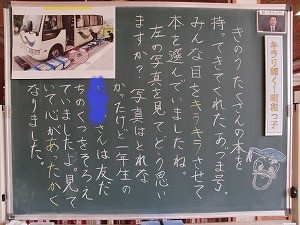 きのうたくさんの本を
持ってきてくれたあづま号。
みんな目をキラキラさせて
本を選んでいましたね。
左の写真を見てどう思い
ますか？写真はとれな
かったけど一年生の
さんは友だ
ちのくつをそろえ
ていましたよ。見て
いて心があたたかく
なりました。
キラリ輝く！明和っ子